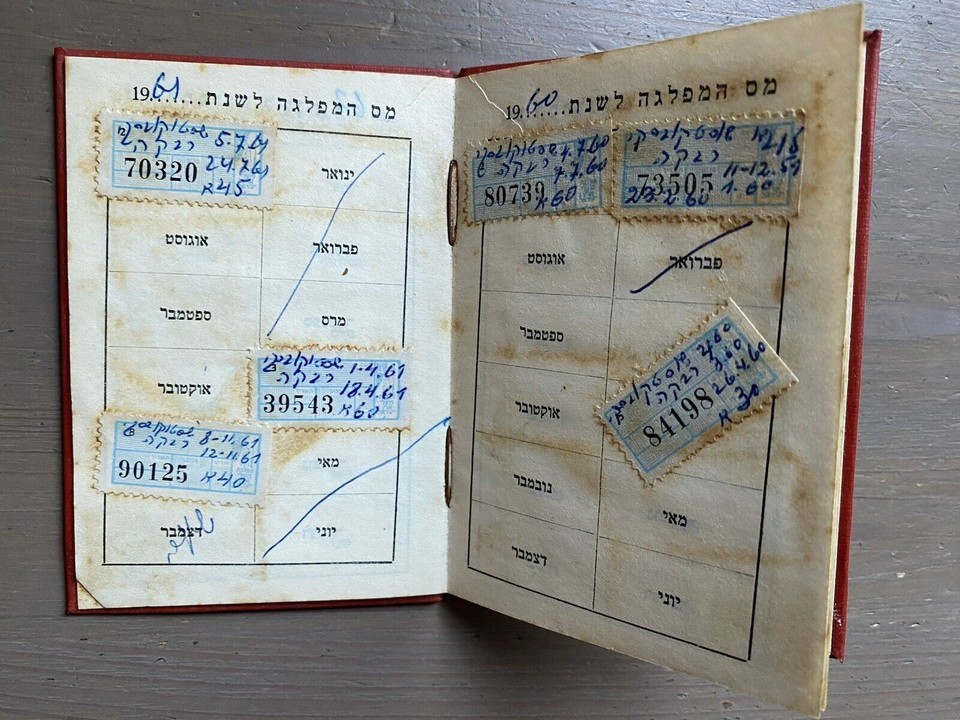 מס המפלגה לשנת ......1960
שוסטקובסקי
רבקה
73505
11-12.59
1.60
23.2.60
4.7.60
רבקה
7.7.60
80739
60
פברואר
אוגוסט
ספטמבר
2.60
3.60
רבקה
26.4.60
84198
30
אוקטובר
מאי
נובמבר
יוני
דצמבר
מס המפלגה לשנת ......1961
ינואר
5.7.61
רבקה
24.7.61
70320
45
פברואר
אוגוסט
מרס
ספטמבר
1-4.61
רבקה
18.4.61
39543
60
אוקטובר
מאי
8-11.61
רבקה
12.11.61
90125
40
יוני
דצמבר